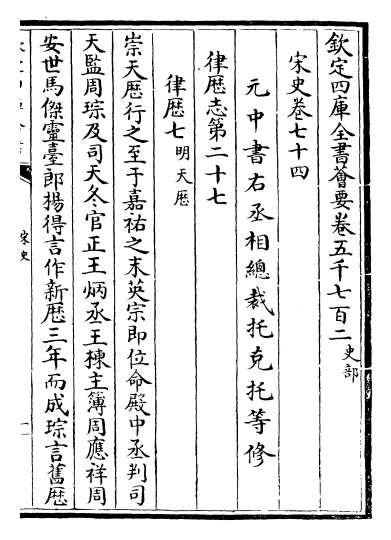 欽定四庫全書薈要卷五千七百二 史部
宋史卷七十四
元中書右丞相總裁托克托等修
律歴志第二十七
律歴七 明天歴
崇天歴行之至于嘉祐之末英宗即位命殿中丞判司
天監周琮及司天冬官正王炳丞王棟主簿周應祥周
安世馬傑靈臺郎楊得言作新歴三年而成琮言舊歴
宋史